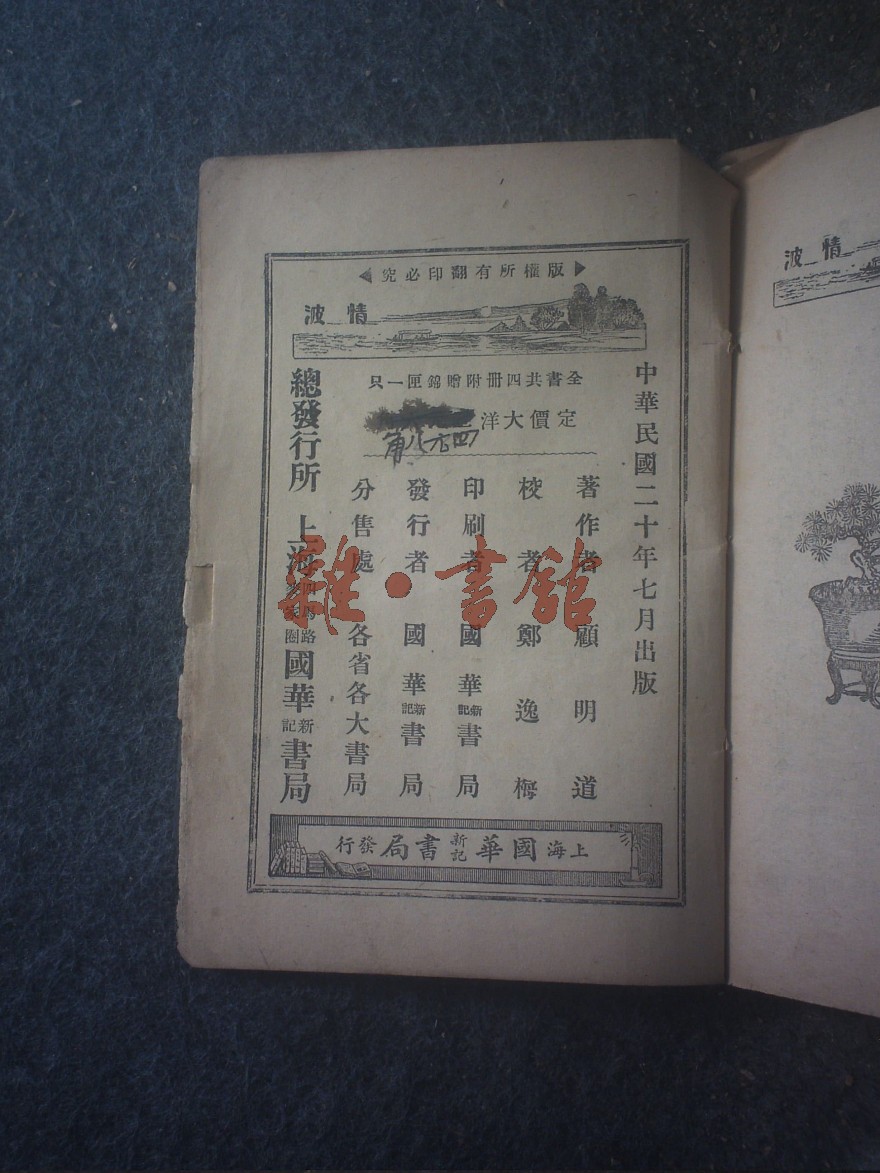 版權所有翻印必究
情波
中華民國二十年七月出版
全書共四冊附贈錦匣一只
定價大洋
四元八角
著作者 顧明道
校者 鄭逸梅
印刷者 國華新記書局
發行者 國華新記書局
分售處 各省各大書局
總發行所 上海四馬路麥家圈國華新記書局
上海國華新記書局發行
雜·書舘
情波